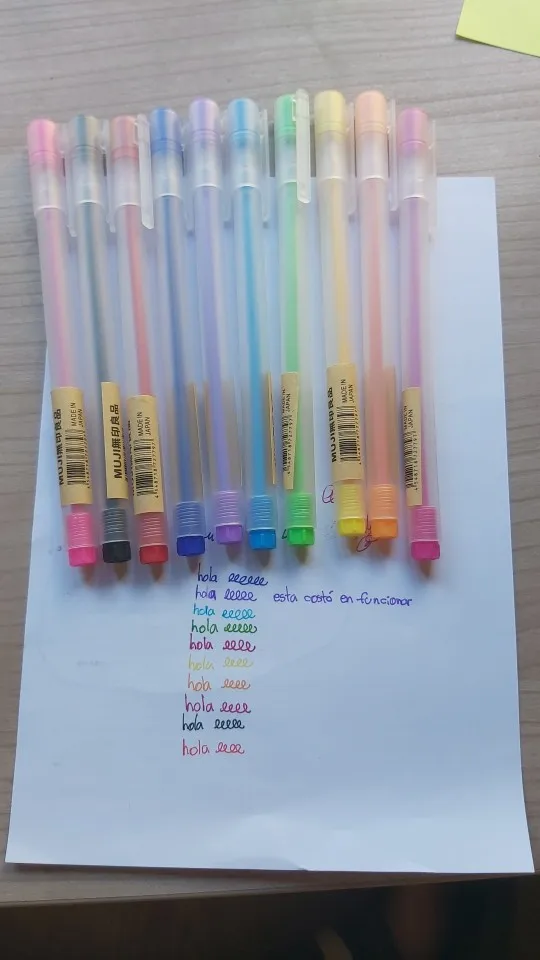 MUJI無印良品
MADE IN JAPAN
MUJI無印良品
MADE IN JAPAN
MADE IN JAPAN
MUJI無印良品
MADE IN JAPAN
hola eeeeee
hola eeeee esta costó en funcionar
hola eeeee
hola eeeee
hola eeee
hola eeee
hola eeee
hola eeee
hola eeee
hola eeee